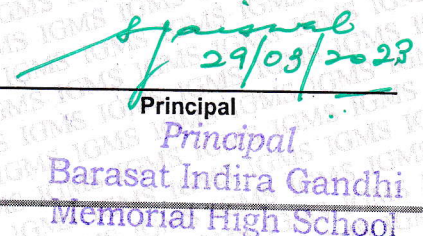 Sjaiswal
29/03/2023
Principal
Principal
Barasat Indira Gandhi
Memorial High School